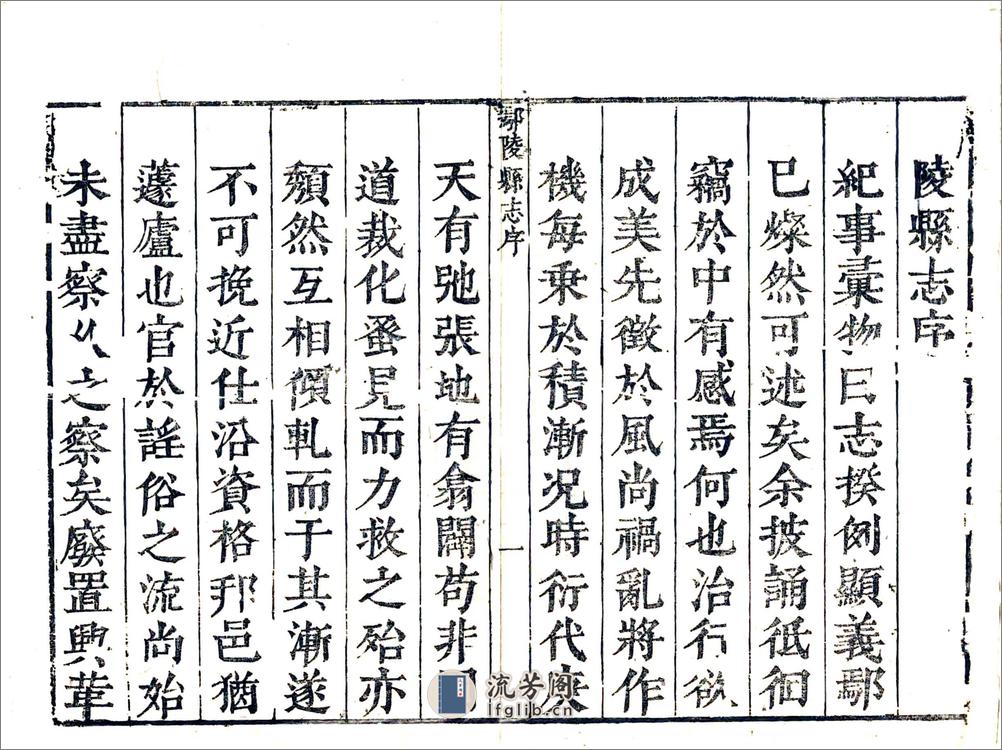 陵縣志序
紀事彙物曰志揆例顯義鄢
已燦然可述矣余披誦彽徊
竊於中有感焉何也治行欲
成美先徵於風尚禍亂將作
機每乘於積漸况時衍代
鄢陵縣志序
一
天有弛張地有翕闢苟非
道裁化蚤見而力救之殆亦
頹然互相傾軋而于其漸遂
不可挽近仕沿資格邦邑猶
蘧廬也官於謠俗之流尚始
未盡察之察矣廢置興革
流芳阁
lfglib.cn